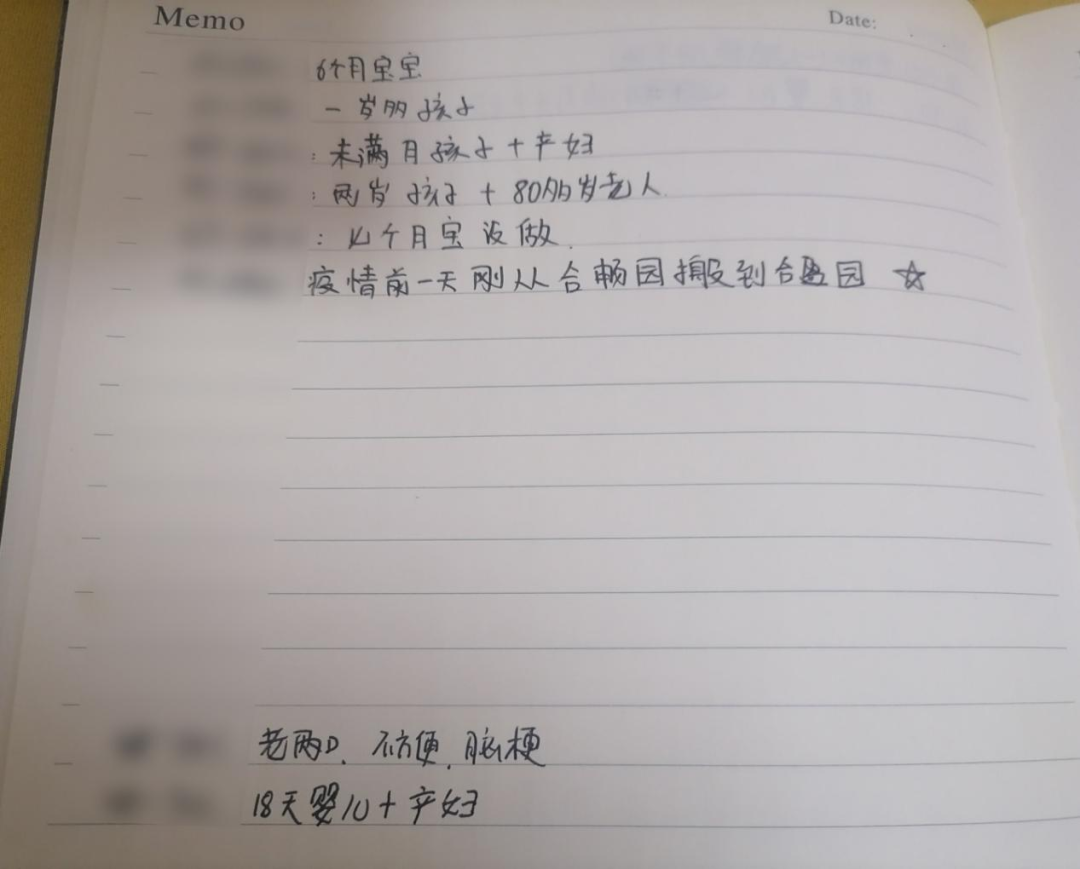 Memo
Date:
6个月宝宝
一岁多孩子
:未满月孩子+产妇
:两岁孩子+80多岁老人
:14个月宝没做.
疫情前一天刚从合畅园搬到合盈园 ☆
老两口、不方便、脑梗
18天婴儿+产妇